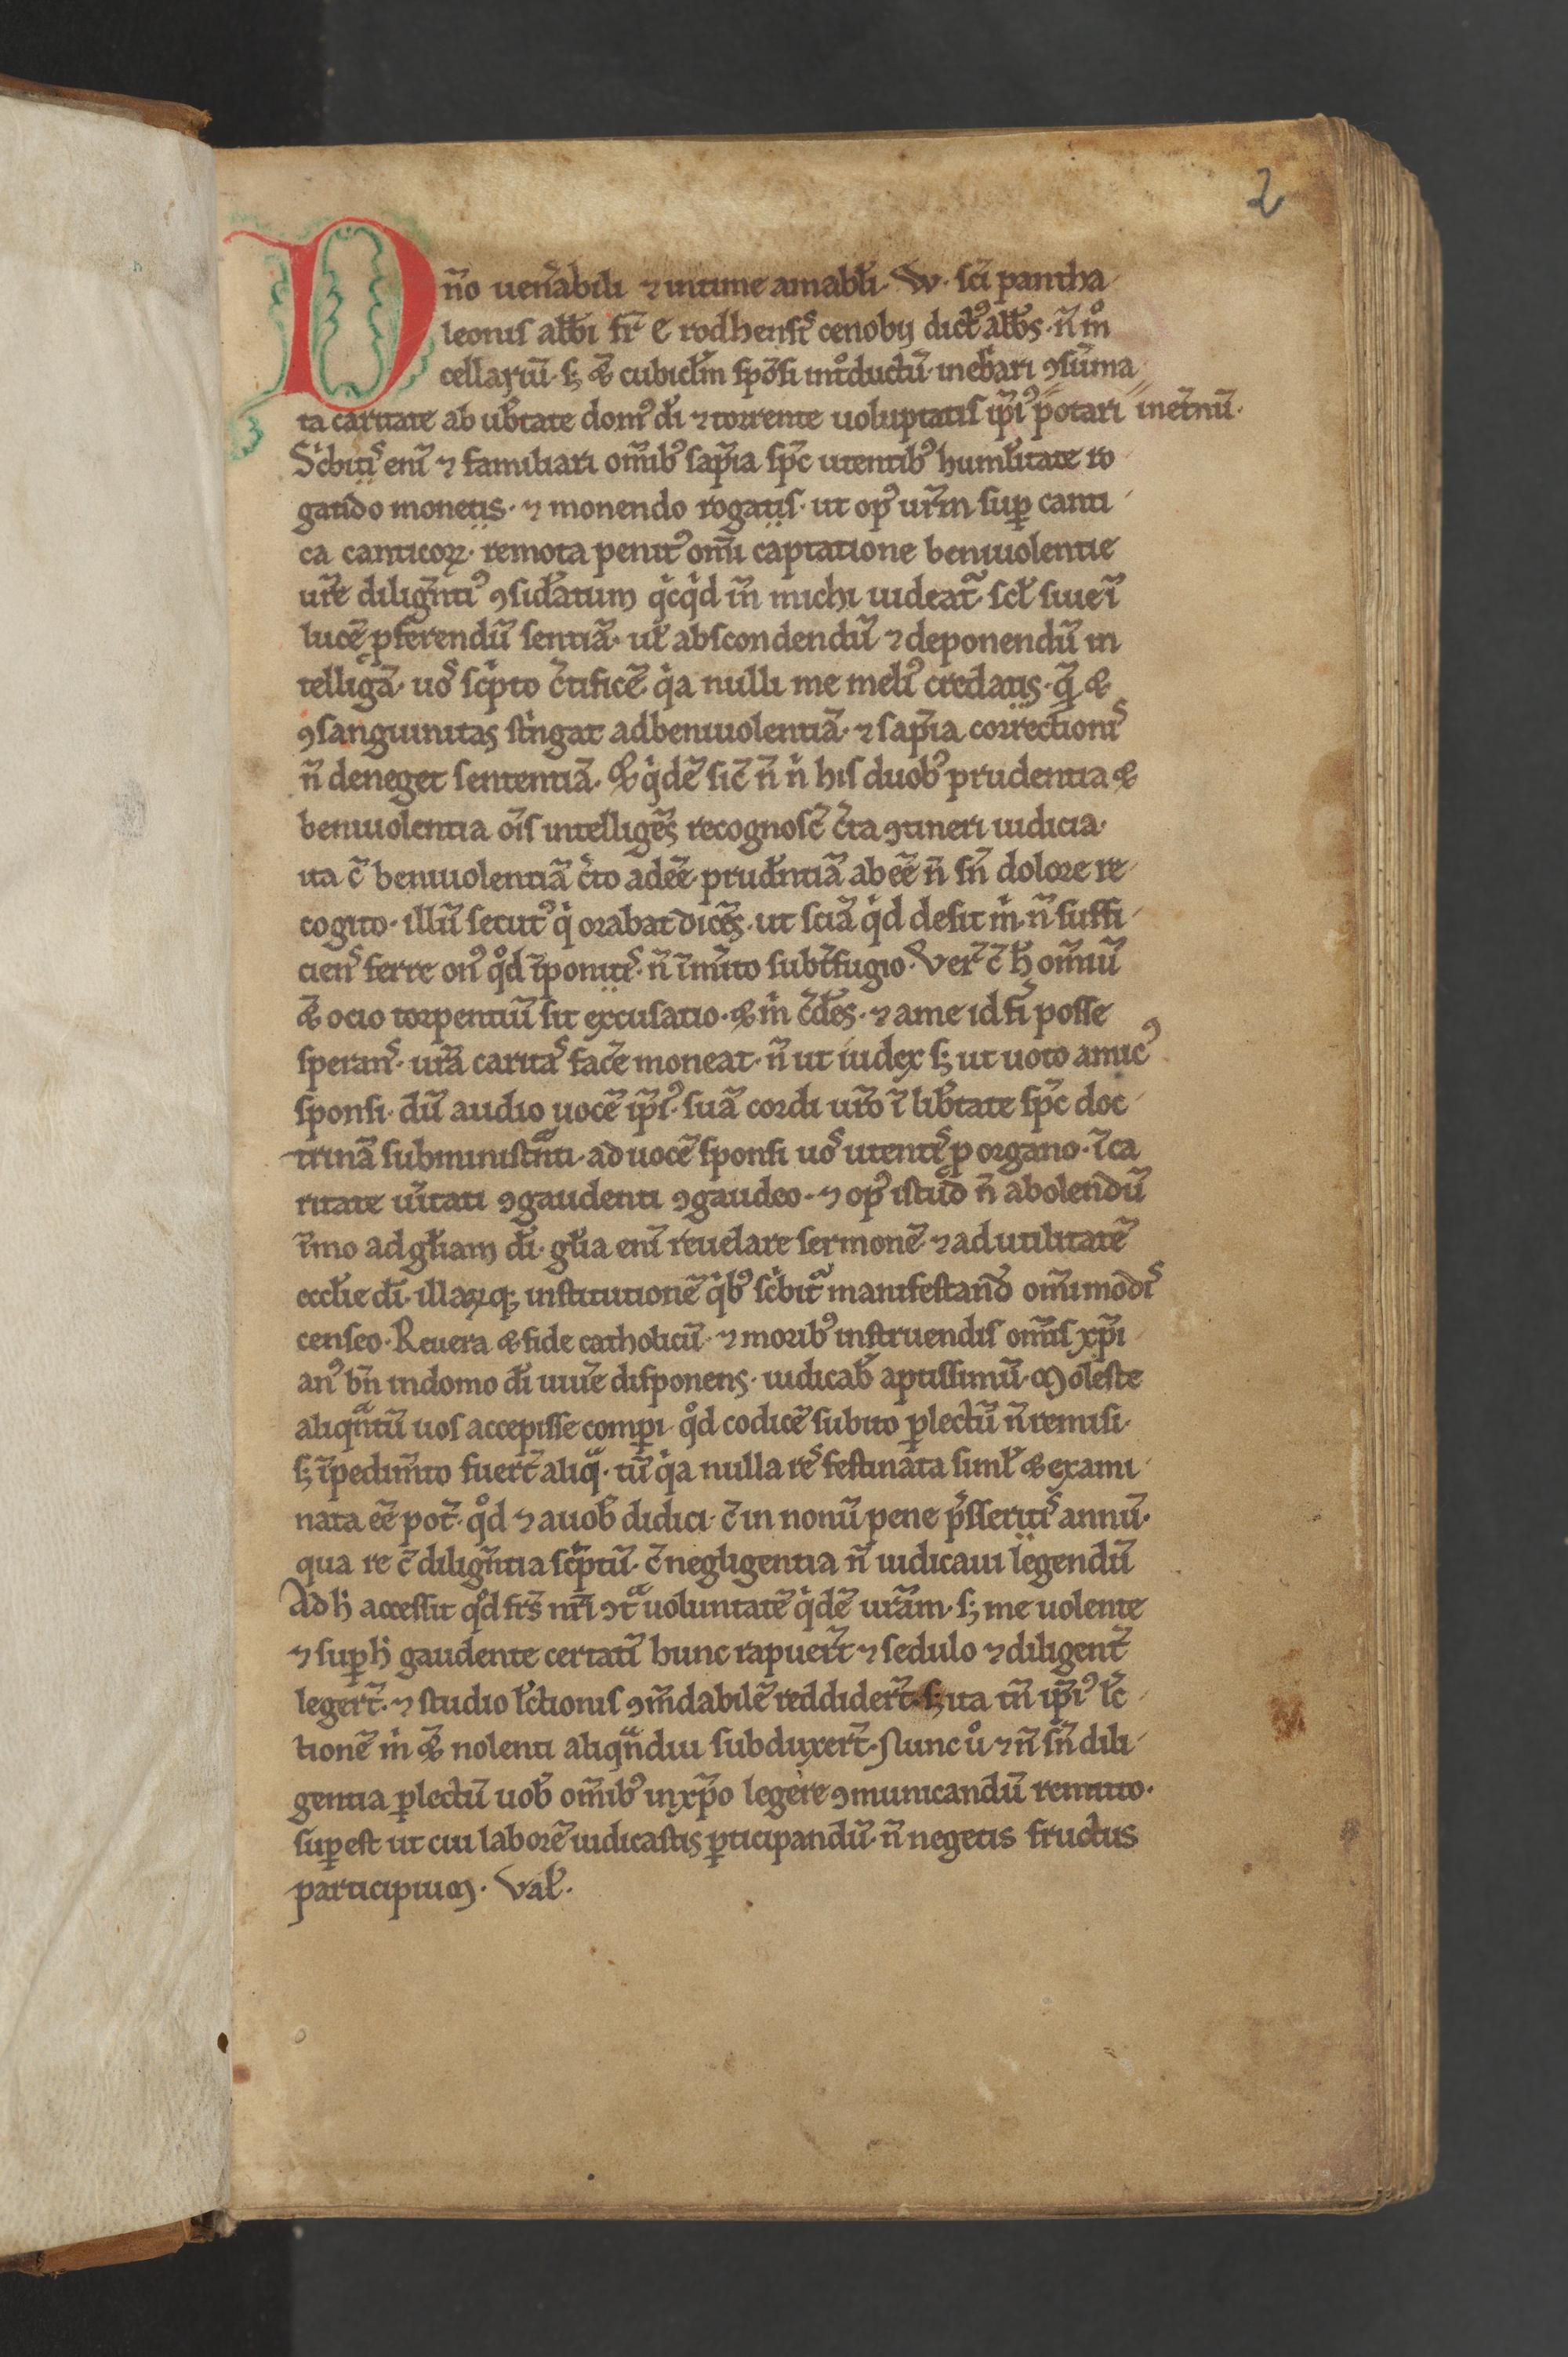 2
Dn̄o uen̄abili ⁊ intime amabłi· W· sc̄i pantha-
leonis abb̄i fr̄ E rodhensis cenobij dict⁹ abb̄s· n̄ in̊
cellariū· s; & cubicłm sp̄osi int̊ductū· inebͥari ꝯsūma-
ta caritate ab ub̄tate dom⁹ dī ⁊ torrente uoluptatis ip̄i⁹ potari inet̄nū·
Scͥbitis enī ⁊ familiari om̄ib⁹ sap̄ia sp̄c utentib⁹ humłitate ro
gando monetis· ⁊ monendo rogatis· ut op⁹ ur̄m suꝑ canti-
ca canticoꝝ· remota penit⁹ om̄i captatione beniuolentie
ur̄e dilign̄ti⁹ ꝯsid̄atum qͥcqͥd in̄ michi uideat᷑ scł siue ī
lucē p̄ferendū sentiā· uł abscondendū ⁊ deponendū in
telligā· uos scͥpto c̄tificē qͥa nulli me meli⁹ credatis· q̄ &
ꝯsanguinitas stͥngat adbeniuolentiā· ⁊ sap̄ia correctionis
n̄ deneget sententiā· & qͥdē sic̄ n̄ n̄ his duob⁹ prudentia &
beniuolentia oīs intelligēs recognosc̄ c̄ta ꝯtineri iudicia·
ita c̄ beniuolentiā c̄to adeē prudn̄tiā abeē n̄ sn̄ dolore re-
cogito· illū secut⁹ qͥ orabat dicēs· ut sciā qͥd desit mͥ· n̄ suffi-
ciens ferre on⁹ qd̊ īponitis· n̄ īm̄ito subt̄fugio· Ver̄ c̄ h̄ om̄iū
& ocio torpentiū sit excusatio· & mͥ c̄des· ⁊ ame id fī posse
sperans· ur̄a caritas fac̄e moneat· n̄ ut iudex s; ut uoto amic⁹
sponsi· dū audio uocē ip̄i⁹· suā cordi ur̄o ī lib̄tate sp̄c doc-
trinā subministn̄ti· ad uocē sponsi uos utentis ꝓ organo· ī ca
ritate ūitati ꝯgaudenti ꝯgaudeo· ⁊ op⁹ istud n̄ abolendū
īmo ad głiam dī· głia enī reuelare sermonē ⁊ ad utilitatē
eccłie dī· illaꝝq; institutionē qͥb⁹ scͥbit᷑ manifestand̄ om̄imodis
censeo· Reuera & fide catholicū· ⁊ morib⁹ instruendis om̄is xp̄i
an⁹ bn̄ indomo dī uiu̅e disponens· iudicab̄ aptissimū· Moleste
aliqn̄tū uos accepisse comꝑi· qd̊ codicē subito ꝑlectū n̄ remisi·
s; īpedim̄to fuer̄t aliq̄· tū qͥa nulla res festinata simł & exami-
nata eē pot̄· qd̊ ⁊ auob̄ didici· c̄ in nonū pene p̄sseritis annū·
qua re c̄ dilign̄tia scͥptū· c̄ negligentia n̄ iudicaui legendū
Ad h̄ accessit qd̊ frs̄ nr̄i ꝯt᷑ uoluntatē qͥdē ur̄am· s; me uolente
⁊ suꝑ h̄ gaudente certatī hunc rapuer̄t ⁊ sedulo ⁊ diligent̄
leger̄t· ⁊ studio lc̄tionis ꝯm̄dabilē reddider̄t· s; ita tn̄ ip̄i⁹ lc̄-
tionē mͥ & nolenti aliqn̄diu subduxer̄t· Nunc ů ⁊ n̄ sn̄ dili-
gentia ꝑlectū uob̄ om̄ib⁹ inxp̄o legere ꝯmunicandū remitto·
suꝑest ut cui laborē iudicastis ꝑticipandū· n̄ negetis fructus
participium· Vał·